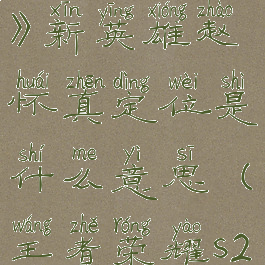 xīn yīng xióng zhào
》新英雄赵
huái zhēn dìng wèi shì
怀真定位是
shí me yì sī
什么意思（
wáng zhě róng yào
王者荣耀s2